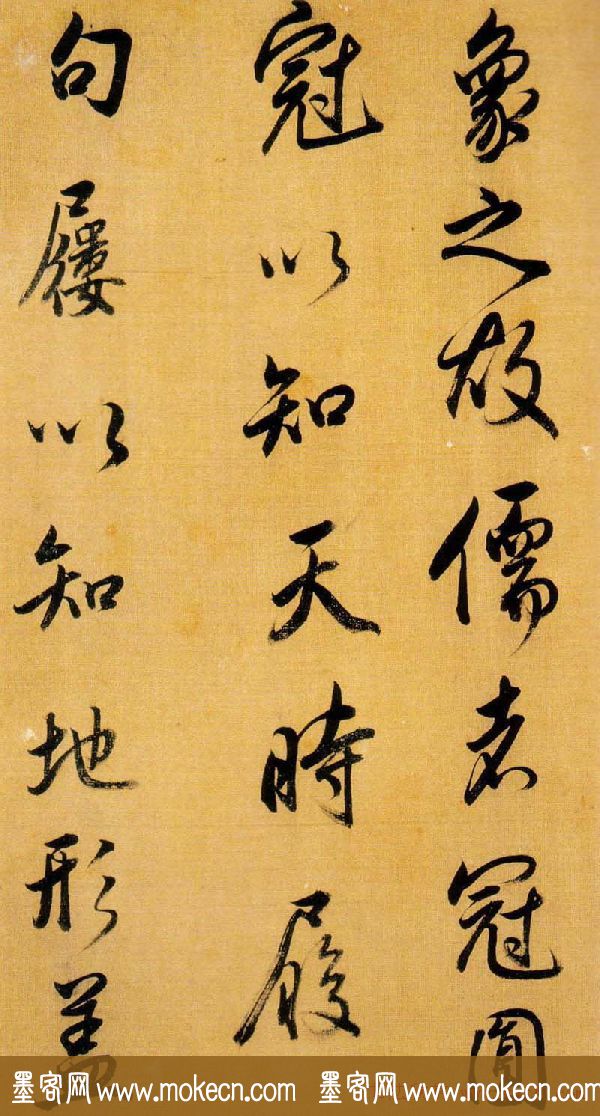 象之故儒者冠圓
冠以知天時履
句屨以知地形盖
墨客网 www.mokecn.com 墨客网 www.mokecn.com